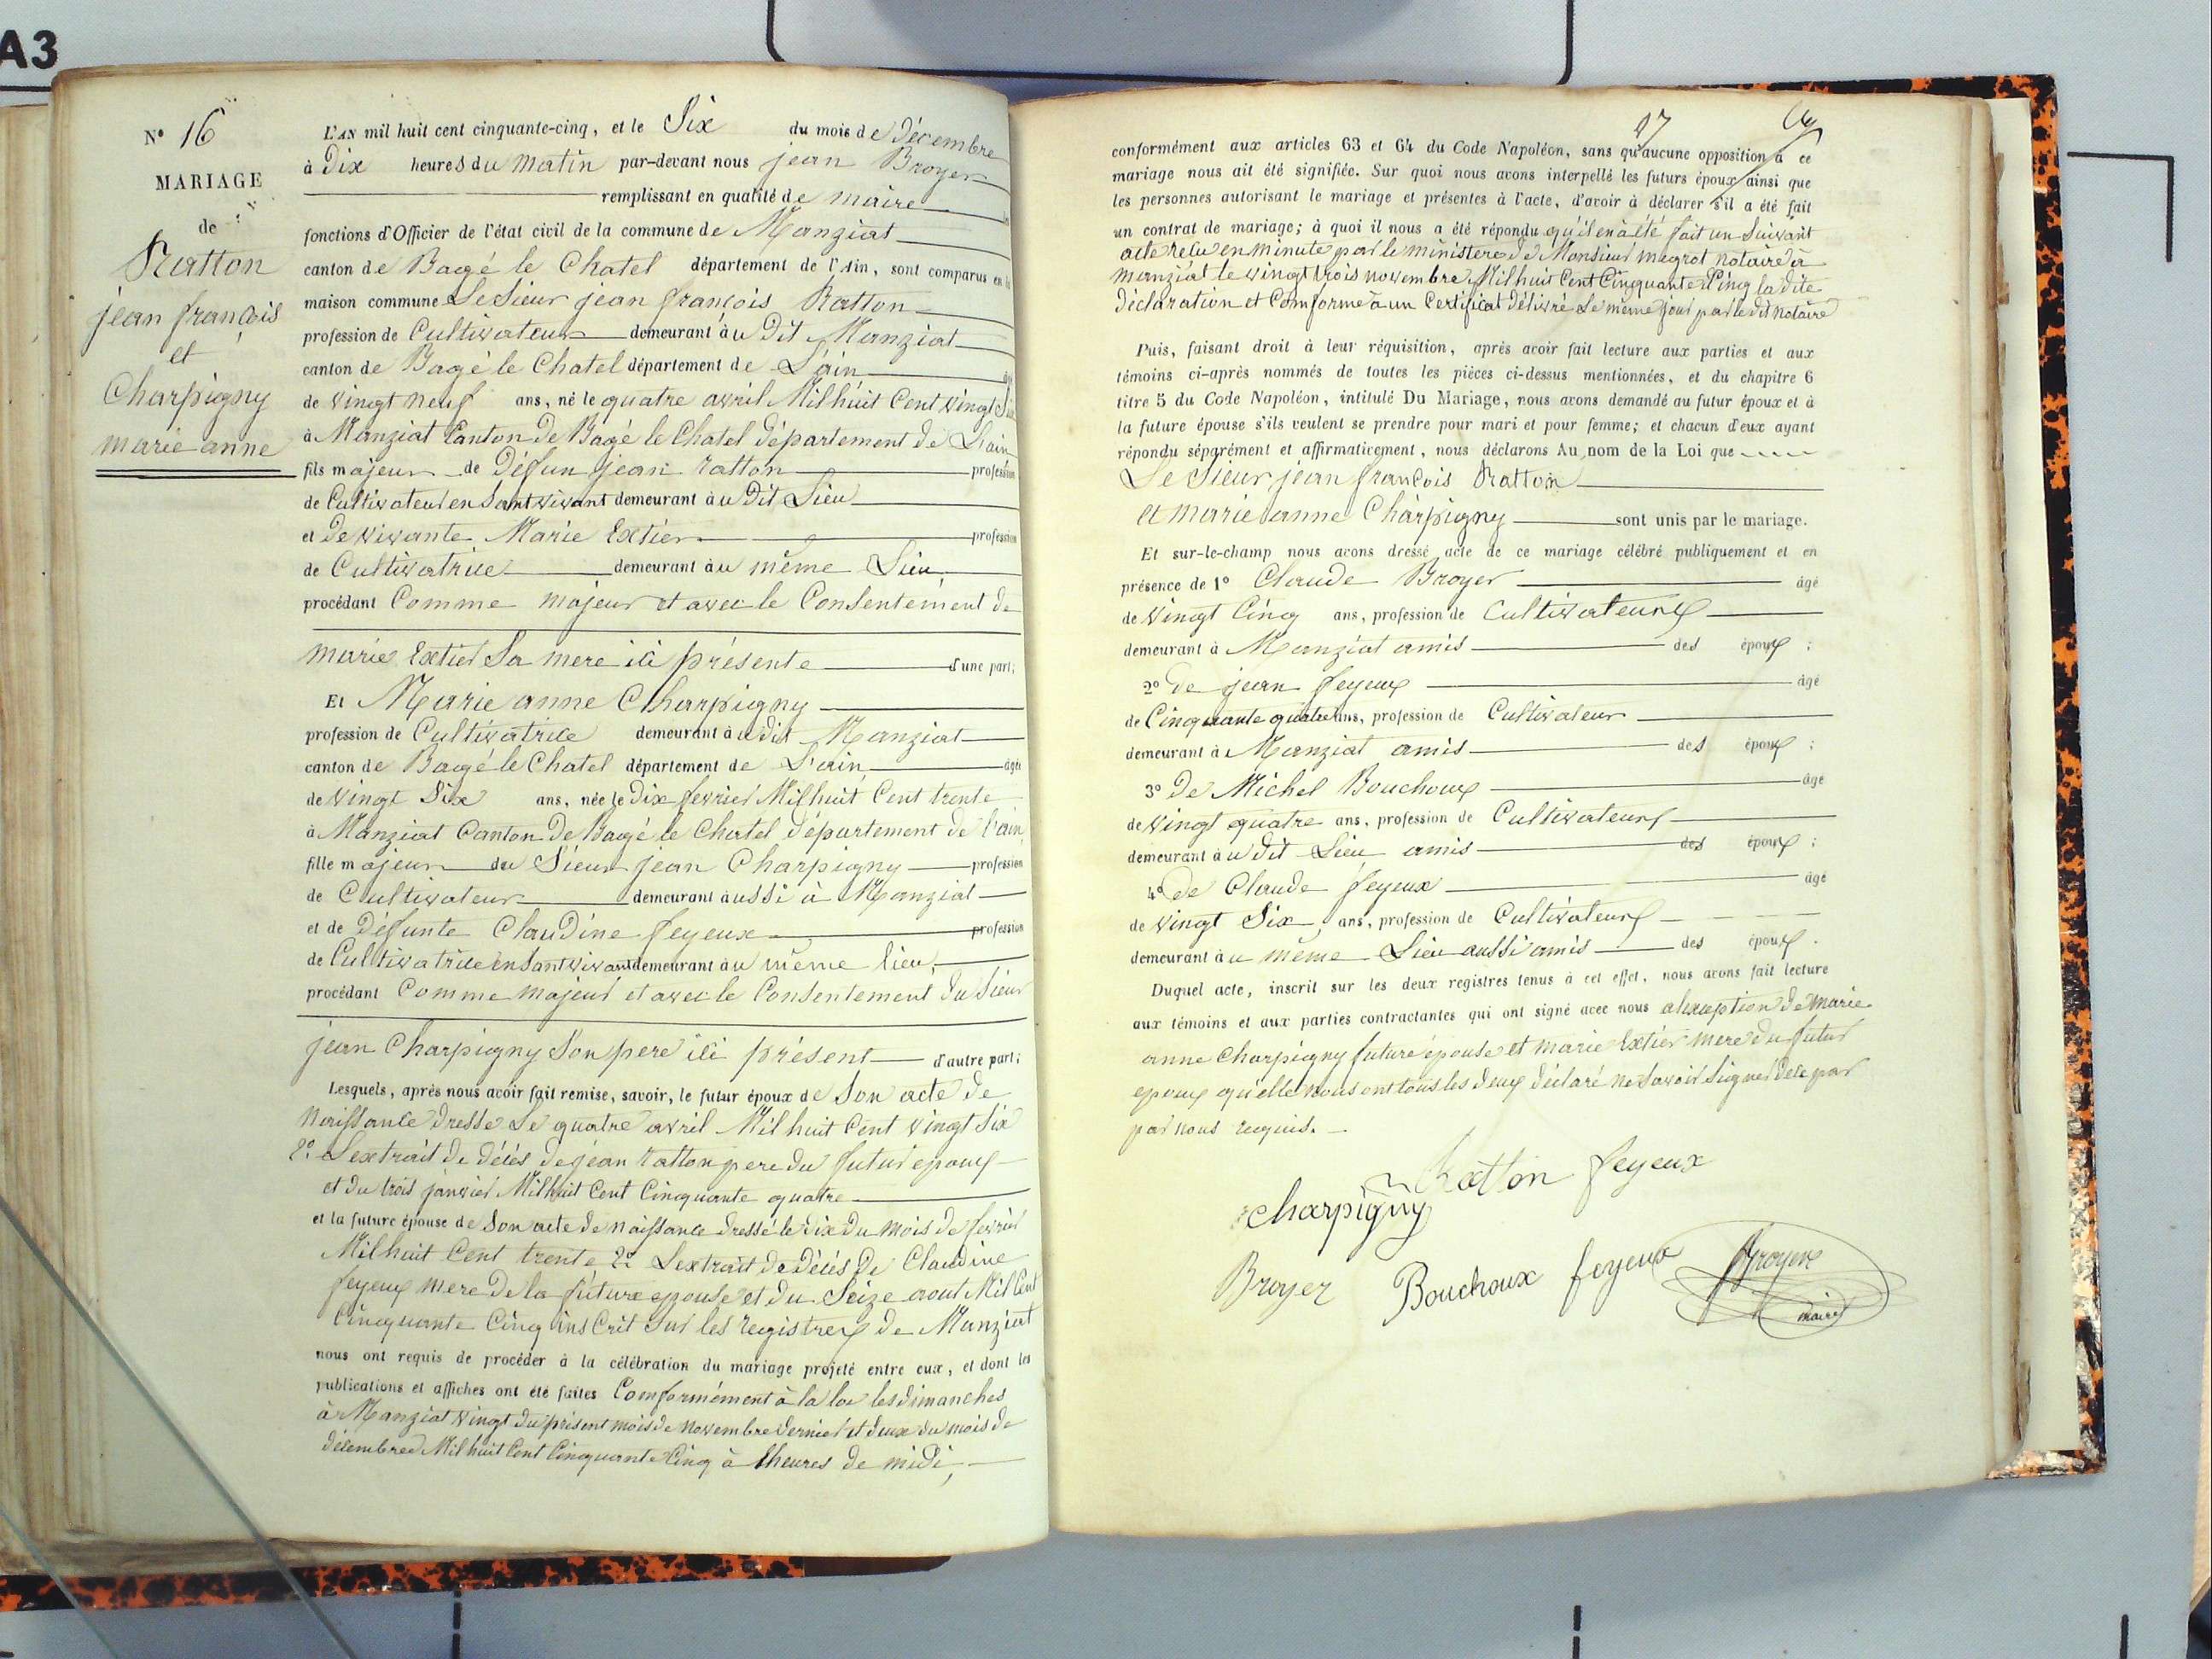 A3
N° 16
MARIAGE
de
Ratton
jean françois
et
Charpigny
marie anne
L'AN mil huit cent cinquante-cinq, et le Six du mois de Décembre
à Dix heures du matin par-devant nous jean Broyer
remplissant en qualité de maire
fonctions d'Officier de l'état civil de la commune de Manziat
canton de Bagé le Chatel département de l'Ain, sont comparus en la
maison commune Le Sieur jean françois Ratton
profession de Cultivateur demeurant àu Dit Manziat
canton de Bagé le Chatel département de L'ain
de vingt neuf ans, né le quatre avril Mil huit Cent vingt Six
à Manziat Canton De Bagé le Chatel Département de L'ain
fils majeur de Défun jean ratton profession
de Cultivateur en Sant vivant demeurant àu Dit Lieu
et De vivante Marie Extier profession
de Cultivatrice demeurant àu même Lieu,
procédant Comme majeur et avec le Consentement de
marie Extier Sa mere ici présente d'une part;
Et Marie anne Charpigny
profession de Cultivatrice demeurant àu dit Manziat
canton de Bagé le Chatel département de L'ain âgée
de Vingt Six ans, née le Dix fevrier Mil huit Cent trente
à Manziat Canton De Bagé le Chatel Département de l'ain
fille majeur du Sieur jean Charpigny profession
de Cultivateur demeurant àussi à Manziat
et de Défunte Claudine feyeux profession
de Cultivatrice en Sant vivant demeurant àu même lieu,
procédant Comme majeur et avec le Consentement du Sieur
jean Charpigny Son pere ici présent d'autre part;
Lesquels, après nous avoir fait remise, savoir, le futur époux de Son acte de
Naissance Dressé Le quatre avril Mil huit Cent vingt Six
2° L'extrait de Décés de jean ratton pere du futur epoux
et du trois janvier Mil huit Cent Cinquante quatre
et la future épouse de Son acte de Naissance Dressé le Dix Du Mois de fevrier
Mil huit Cent trente 2° L'extrait de Décés De Claudine
feyeux mere De la future epouse et du Seize aout Mil Cent
Cinquante Cinq inscrit Sur les registrex de Manziat
nous ont requis de procéder à la célébration du mariage projeté entre eux, et dont les
publications et affiches ont été faites Comformément à la loi les dimanches
à Manziat vingt du présent mois de Novembre Dernier et deux du mois de
Décembre Mil huit Cent Cinquante Cinq à lheures de midi,
27
conformément aux articles 63 et 64 du Code Napoléon, sans qu'aucune opposition à ce
mariage nous ait été signifiée. Sur quoi nous avons interpellé les futurs époux ainsi que
les personnes autorisant le mariage et présentes à l'acte, d'avoir à déclarer s'il a été fait
un contrat de mariage; à quoi il nous a été répondu qu'il en à été fait un Suivant
acte relu en minute par le ministere de Monsieur megrot notaire à
manziat le vingt trois novembre Mil huit Cent Cinquante Cinq la dite
Déclaration et Comforme à un Certificat Délivré Le même jour par le dit notaire
Puis, faisant droit à leur réquisition, après avoir fait lecture aux parties et aux
témoins ci-après nommés de toutes les pièces ci-dessus mentionnées, et du chapitre 6
titre 5 du Code Napoléon, intitulé Du Mariage, nous avons demandé au futur époux et à
la future épouse s'ils veulent se prendre pour mari et pour femme; et chacun d'eux ayant
répondu séparément et affirmativement, nous déclarons Au nom de la Loi que
Le Sieur jean françois Ratton
et marie anne Charpigny sont unis par le mariage.
Et sur-le-champ nous avons dressé acte de ce mariage célébré publiquement et en
présence de 1° Claude Broyer âgé
de Vingt Cinq ans, profession de Cultivateurx
demeurant à Manziat amis des époux ;
2° De jean feyeux âgé
de Cinquante quatre ans, profession de Cultivateur
demeurant à Manziat amis des époux ;
3° De Michel Bouchoux âgé
de Vingt quatre ans, profession de Cultivateur
demeurant àu dit Lieu amis des époux ;
4° De Claude feyeux âgé
de Vingt Six ans, profession de Cultivateur
demeurant àu même Lieu aussi amis des époux.
Duquel acte, inscrit sur les deux registres tenus à cet effet, nous avons fait lecture
aux témoins et aux parties contractantes qui ont signé avec nous alexseption de marie
anne Charpigny future épouse et marie Extier mere du futur
epoux qu'elle nous ont tous les deux déclaré ne Savoir Signer dece par
par nous requis.
Ratton feyeux
charpigny
Broyer Bouchoux feyeux Broyer
maire